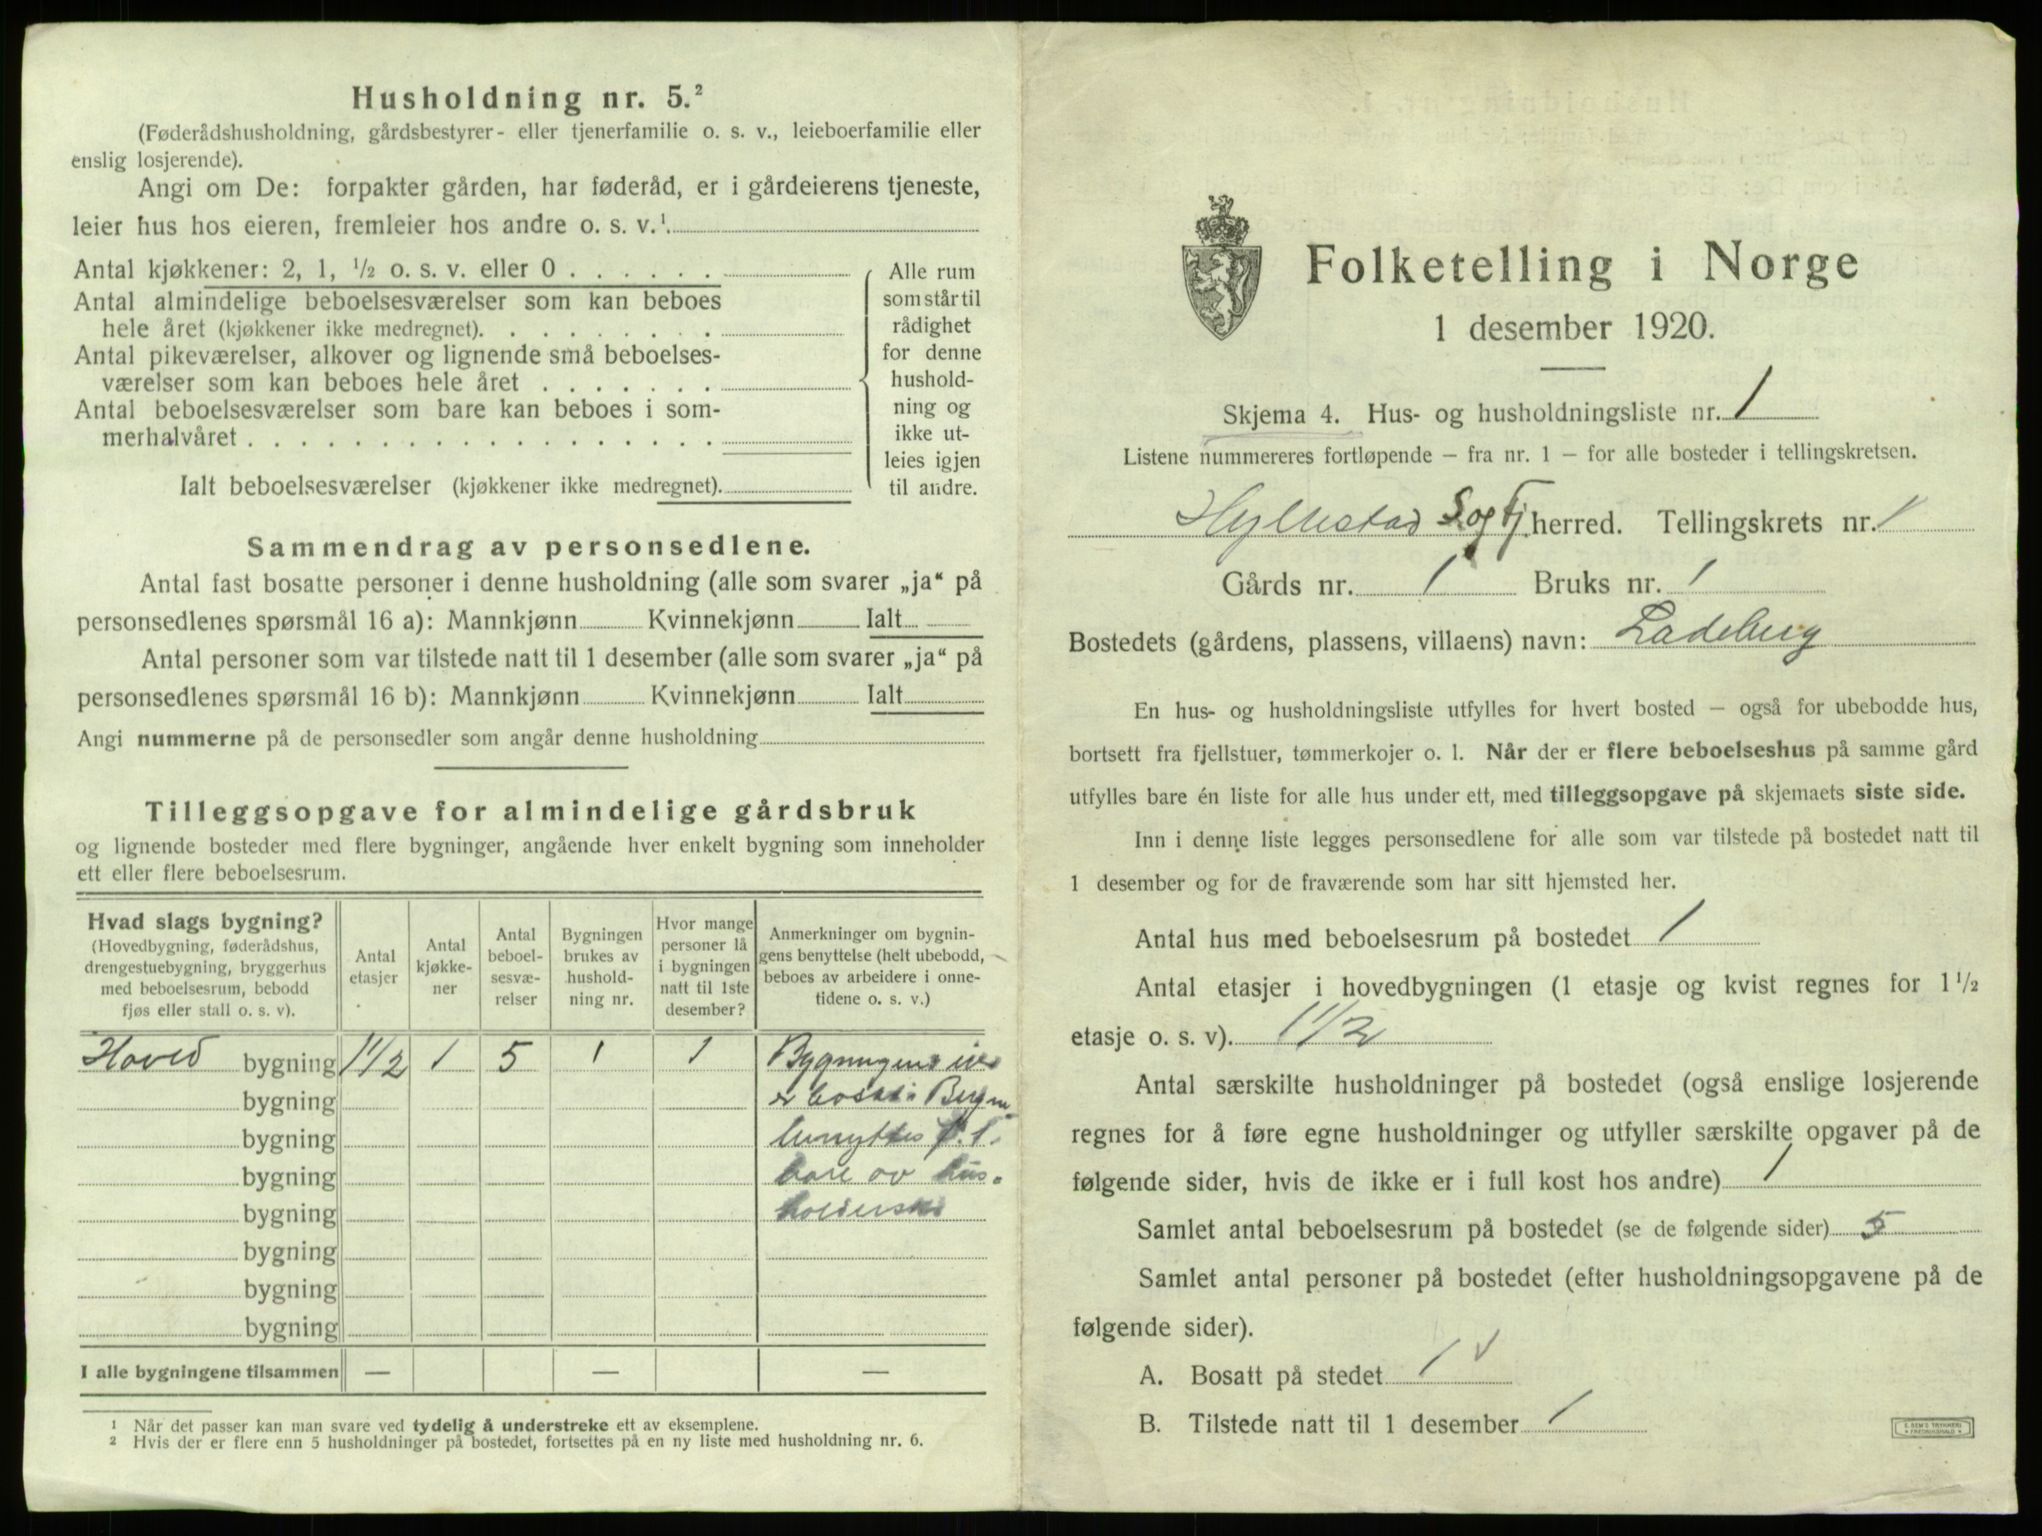 Husholdning nr. 5.²
(Føderådshusholdning, gårdsbestyrer- eller tjenerfamilie o. s. v., leieboerfamilie eller
enslig losjerende).
Angi om De: forpakter gården, har føderåd, er i gårdeierens tjeneste,
leier hus hos eieren, fremleier hos andre o. s. v.¹
Antal kjøkkener: 2, 1, ½ o. s. v. eller 0 . . . . . .
Antal almindelige beboelsesværelser som kan beboes
hele året (kjøkkener ikke medregnet). . . . . . . . .
Antal pikeværelser, alkover og lignende små beboelses-
værelser som kan beboes hele året . . . . . . .
Antal beboelsesværelser som bare kan beboes i som-
merhalvåret . . . . . . . . . . . . . . . . . .
Ialt beboelsesværelser (kjøkkener ikke medregnet).
Alle rum
som står til
rådighet
for denne
hushold-
ning og
ikke ut-
leies igjen
til andre.
Sammendrag av personsedlene.
Antal fast bosatte personer i denne husholdning (alle som svarer „ja“ på
personsedlenes spørsmål 16 a): Mannkjønn Kvinnekjønn Ialt
Antal personer som var tilstede natt til 1 desember (alle som svarer „ja“ på
personsedlenes spørsmål 16 b): Mannkjønn Kvinnekjønn Ialt
Angi nummerne på de personsedler som angår denne husholdning
Tilleggsopgave for almindelige gårdsbruk
og lignende bosteder med flere bygninger, angående hver enkelt bygning som inneholder
ett eller flere beboelsesrum.
Hvad slags bygning?
(Hovedbygning, føderådshus,
drengestuebygning, bryggerhus
med beboelsesrum, bebodd
fjøs eller stall o. s. v).
Antal
etasjer
Antal
kjøkke-
ner
Antal
beboel-
sesvæ-
relser
Bygningen
brukes av
hushold-
ning nr.
Hvor mange
personer lå
i bygningen
natt til 1ste
desember?
Anmerkninger om bygnin-
gens benyttelse (helt ubebodd,
beboes av arbeidere i onne-
tidene o. s. v.)
Hoved bygning 1 1/2 1 5 1 1 Bygningens
bygning er bosat i
bygning benyttes p.t.
bygning bare av hus-
bygning holderske
bygning
bygning
bygning
I alle bygningene tilsammen — — —
¹ Når det passer kan man svare ved tydelig å understreke ett av eksemplene.
² Hvis der er flere enn 5 husholdninger på bostedet, fortsettes på en ny liste med husholdning nr. 6.
Folketelling i Norge
1 desember 1920.
Skjema 4. Hus- og husholdningsliste nr. 1
Listene nummereres fortløpende – fra nr. 1 – for alle bosteder i tellingskretsen.
Hyllestad S og Fj herred. Tellingskrets nr. 1
Gårds nr. 1 Bruks nr. 1
Bostedets (gårdens, plassens, villaens) navn: Ladeberg
En hus- og husholdningsliste utfylles for hvert bosted – også for ubebodde hus,
bortsett fra fjellstuer, tømmerkojer o. l. Når der er flere beboelseshus på samme gård
utfylles bare én liste for alle hus under ett, med tilleggsopgave på skjemaets siste side.
Inn i denne liste legges personsedlene for alle som var tilstede på bostedet natt til
1 desember og for de fraværende som har sitt hjemsted her.
Antal hus med beboelsesrum på bostedet 1
Antal etasjer i hovedbygningen (1 etasje og kvist regnes for 1 ½
etasje o. s. v). 1 1/2
Antal særskilte husholdninger på bostedet (også enslige losjerende
regnes for å føre egne husholdninger og utfyller særskilte opgaver på de
følgende sider, hvis de ikke er i full kost hos andre) 1
Samlet antal beboelsesrum på bostedet (se de følgende sider) 5
Samlet antal personer på bostedet (efter husholdningsopgavene på de
følgende sider).
A. Bosatt på stedet 1 v
B. Tilstede natt til 1 desember 1